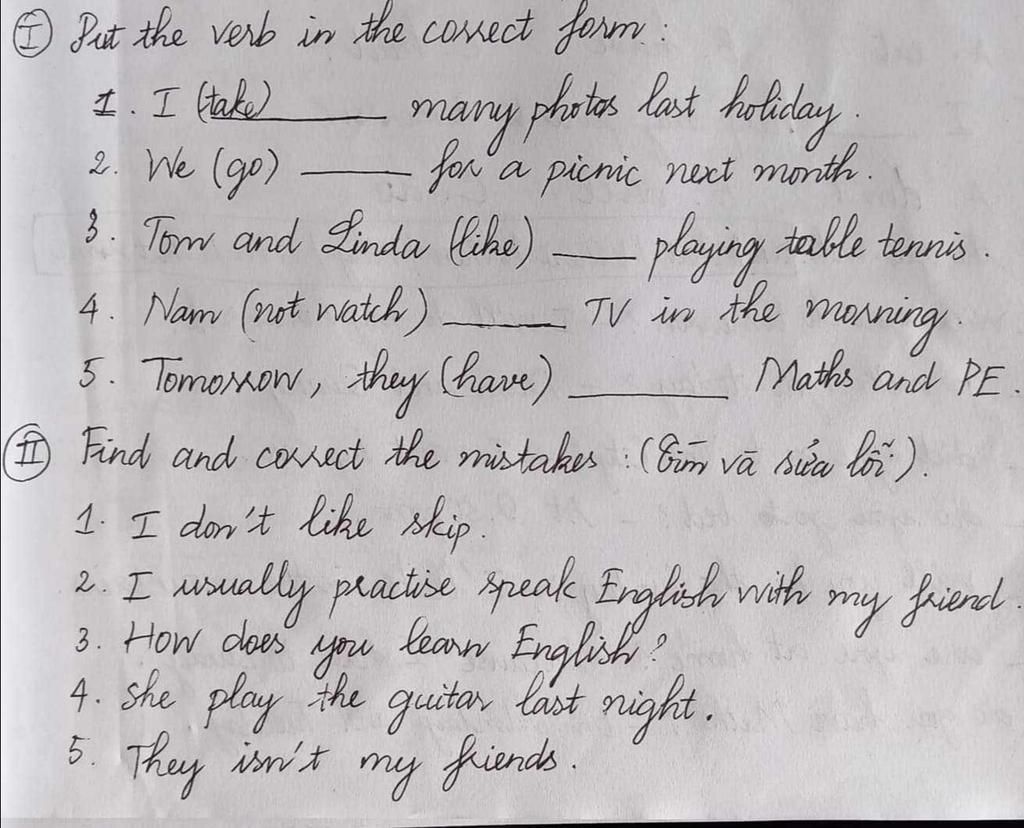 I Put the verb in the correct form:
1. I (take) ______ many photos last holiday.
2. We (go) ______ for a picnic next month.
3. Tom and Linda (like) ____ playing table tennis.
4. Nam (not watch) ______ TV in the morning.
5. Tomorrow, they (have) ________ Maths and PE.
II Find and correct the mistakes: (Tìm và sửa lỗi).
1. I don't like skip.
2. I usually practise speak English with my friend.
3. How does you learn English?
4. She play the guitar last night.
5. They isn't my friends.